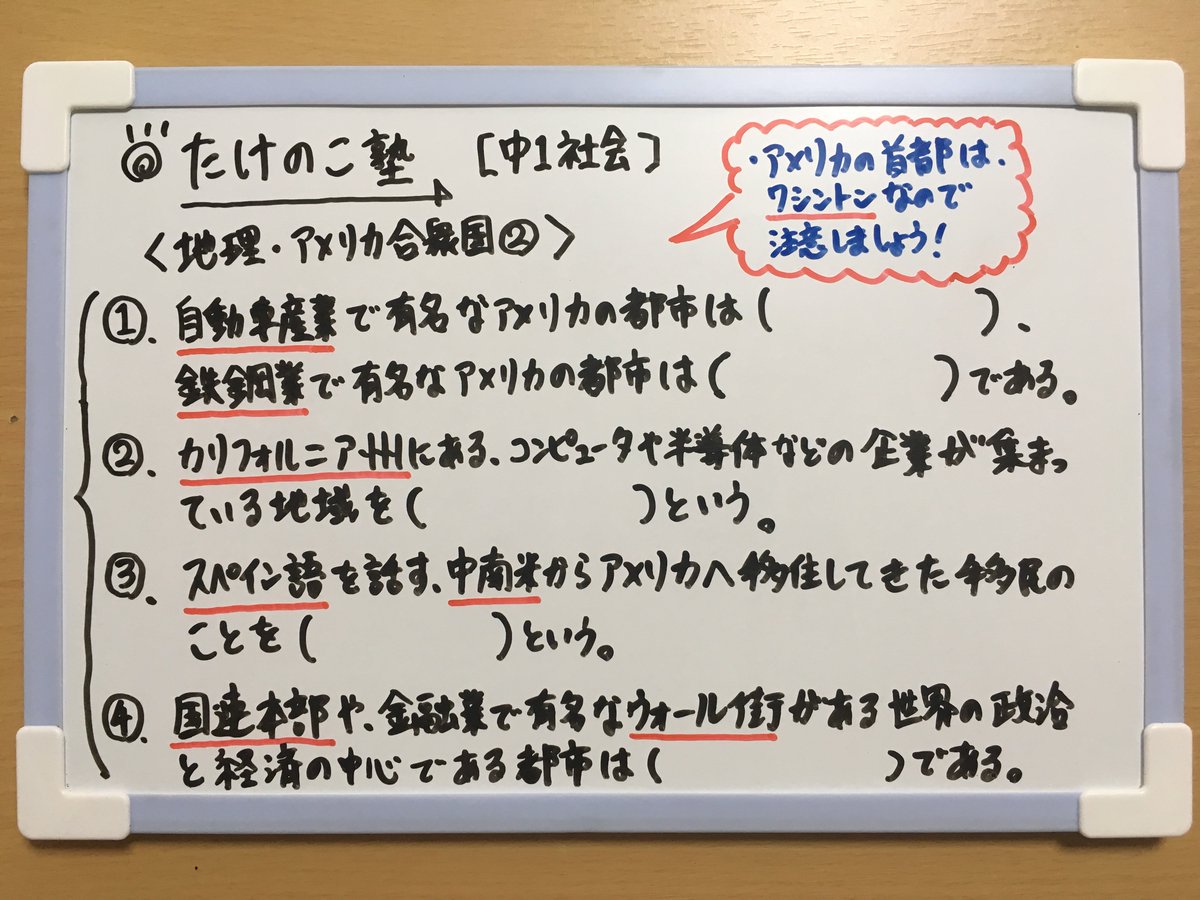 たけのこ塾 [中1社会]
・アメリカの首都は、
ワシントンなので
注意しましょう!
<地理・アメリカ合衆国②>
①. 自動車産業で有名なアメリカの都市は( )、
鉄鋼業で有名なアメリカの都市は( )である。
②. カリフォルニア州にある、コンピュータや半導体などの企業が集まっ
ている地域を( )という。
③. スペイン語を話す、中南米からアメリカへ移住してきた移民の
ことを( )という。
④. 国連本部や、金融業で有名なウォール街がある世界の政治
と経済の中心である都市は( )である。